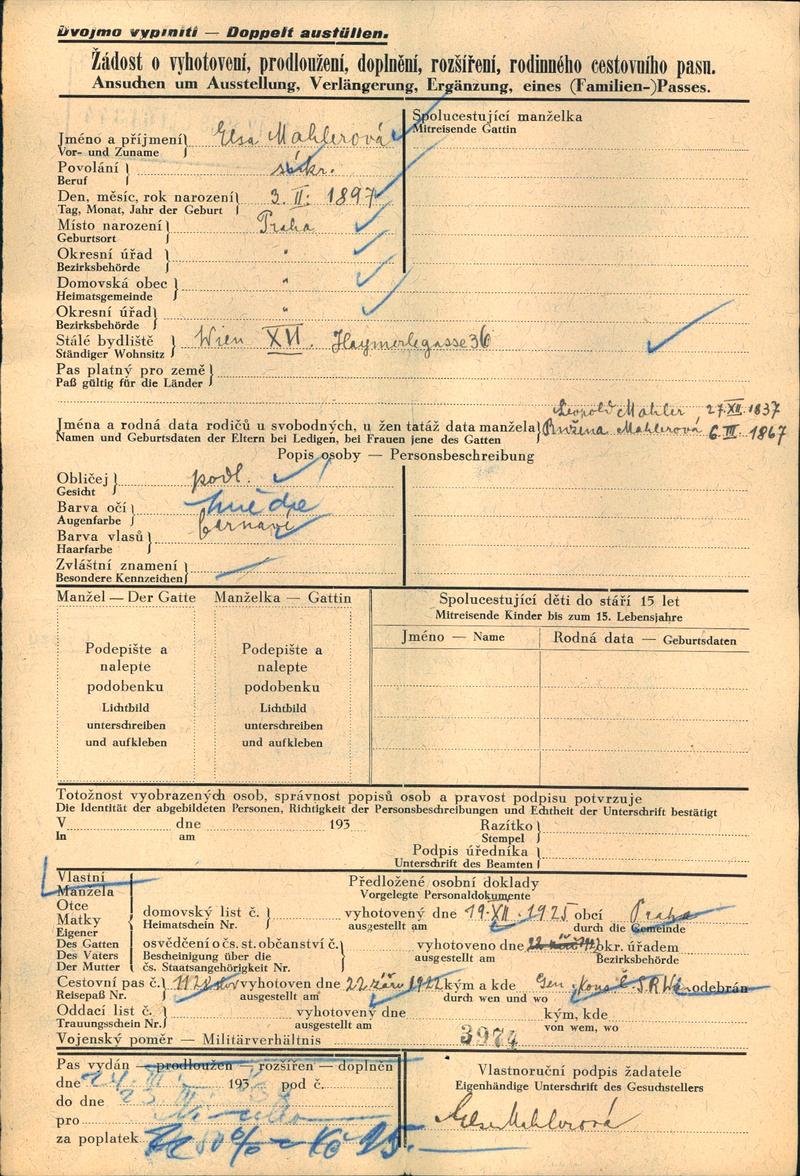 Dvojmo vyplniti — Doppelt ausfüllen.
Žádost o vyhotovení, prodloužení, doplnění, rozšíření, rodinného cestovního pasu.
Ansuchen um Ausstellung, Verlängerung, Ergänzung, eines (Familien-)Passes.
Spolucestující manželka
Mitreisende Gattin
Jméno a příjmení} Elsa Mahlerová
Vor- und Zuname
Povolání}
Beruf
Den, měsíc, rok narození} 3. II. 1897
Tag, Monat, Jahr der Geburt
Místo narození} Praha
Geburtsort
Okresní úřad} "
Bezirksbehörde
Domovská obec} "
Heimatsgemeinde
Okresní úřad} "
Bezirksbehörde
Stálé bydliště} Wien XVI. Haymerlegasse 36
Ständiger Wohnsitz
Pas platný pro země}
Paß gültig für die Länder
Leopold Mahler, 27. XII. 1837
Jména a rodná data rodičů u svobodných, u žen tatáž data manžela} Růžena Mahlerová 6. III. 1867
Namen und Geburtsdaten der Eltern bei Ledigen, bei Frauen jene des Gatten
Popis osoby — Personsbeschreibung
Obličej} podl.
Gesicht
Barva očí} hnědé
Augenfarbe
Barva vlasů}
Haarfarbe
Zvláštní znamení}
Besondere Kennzeichen
Manžel — Der Gatte Manželka — Gattin
Podepište a nalepte podobenku
Lichtbild unterschreiben und aufkleben
Podepište a nalepte podobenku
Lichtbild unterschreiben und aufkleben
Spolucestující děti do stáří 15 let
Mitreisende Kinder bis zum 15. Lebensjahre
Jméno — Name Rodná data — Geburtsdaten
Totožnost vyobrazených osob, správnost popisů osob a pravost podpisu potvrzuje
Die Identität der abgebildeten Personen, Richtigkeit der Personsbeschreibungen und Echtheit der Unterschrift bestätigt
V dne 193 Razítko}
In am Stempel
Podpis úředníka}
Unterschrift des Beamten
Vlastní
Manžela
Otce
Matky
Eigener
Des Gatten
Des Vaters
Der Mutter
Předložené osobní doklady
Vorgelegte Personaldokumente
domovský list č.} vyhotovený dne 19. XII. 1925 obcí Praha
Heimatschein Nr. ausgestellt am durch die Gemeinde
osvědčení o čs. st. občanství č.} vyhotoveno dne okr. úřadem
Bescheinigung über die čs. Staatsangehörigkeit Nr. ausgestellt am Bezirksbehörde
Cestovní pas č.} vyhotoven dne 22. září kým a kde Gen. odebrán
Reisepaß Nr. ausgestellt am durch wen und wo
Oddací list č.} vyhotovený dne kým, kde
Trauungsschein Nr. ausgestellt am von wem, wo
Vojenský poměr — Militärverhältnis 3974
Pas vydán — prodloužen — rozšířen — doplněn
dne 193 pod č.
do dne
pro
za poplatek
Vlastnoruční podpis žadatele
Eigenhändige Unterschrift des Gesuchstellers
Elsa Mahlerová